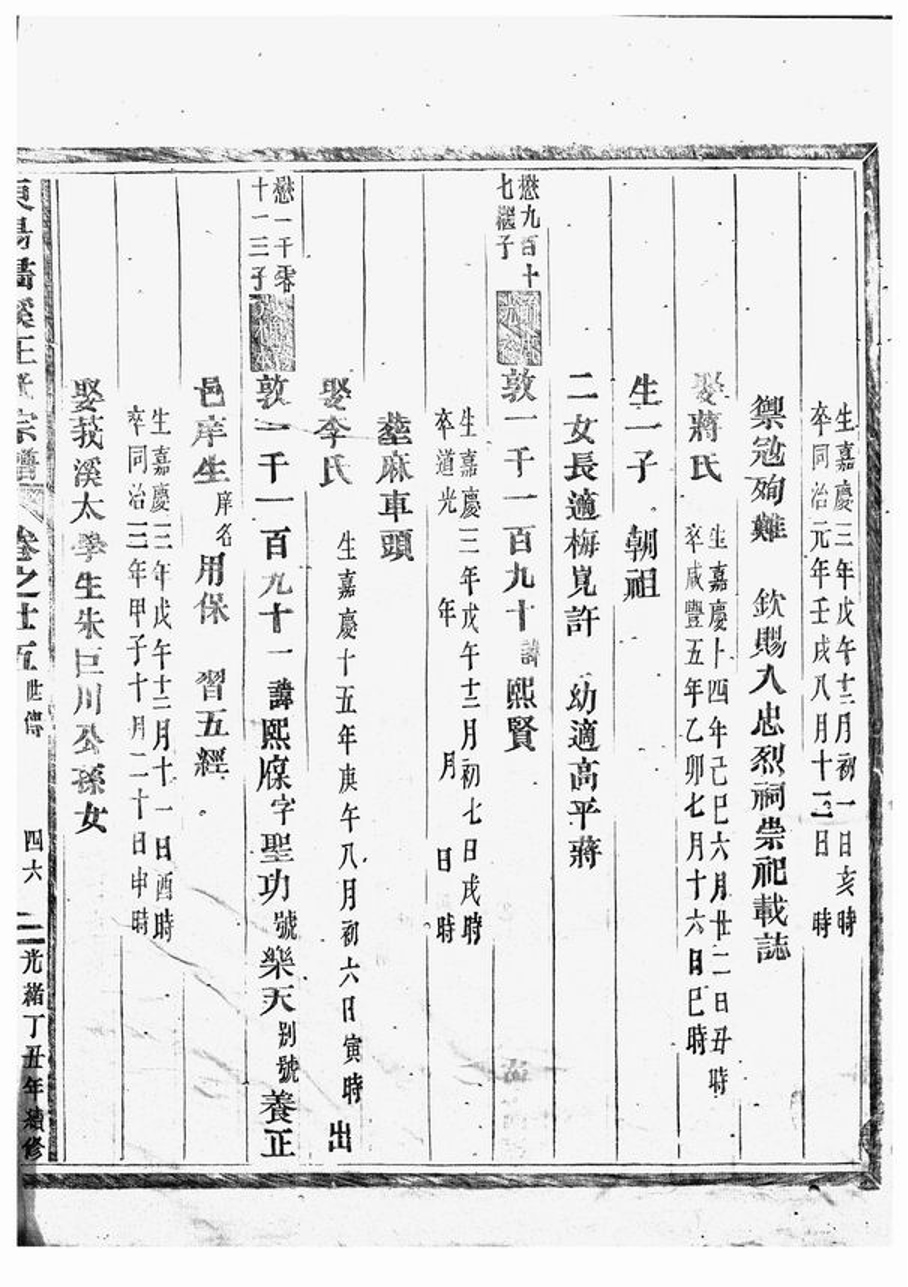 生嘉慶三年戊午十二月初一日亥時
卒同治元年壬戌八月十三日 時
禦冦殉難 欽賜入忠烈祠崇祀載誌
娶蔣氏
生嘉慶十四年己巳六月廿二日丑時
卒咸豐五年乙卯七月十六日巳時
生一子 朝祖
二女長適梅峴許 幼適高平蔣
懋九百十
七繼子
敦一千一百九十諱熙賢
生嘉慶三年戊午十二月初七日戌時
卒道光 年 月 日 時
塟麻車頭
娶李氏 生嘉慶十五年庚午八月初六日寅時 出
懋一千零
十一三子
敦一千一百九十一諱熙牒字聖功號樂天別號養正
邑庠生庠名用保 習五經
生嘉慶三年戊午十二月十一日酉時
卒同治三年甲子十月二十日申時
娶莪溪太學生朱巨川公孫女
溪王氏宗譜 卷之廿五 世傳 四六 光緒丁丑年續修